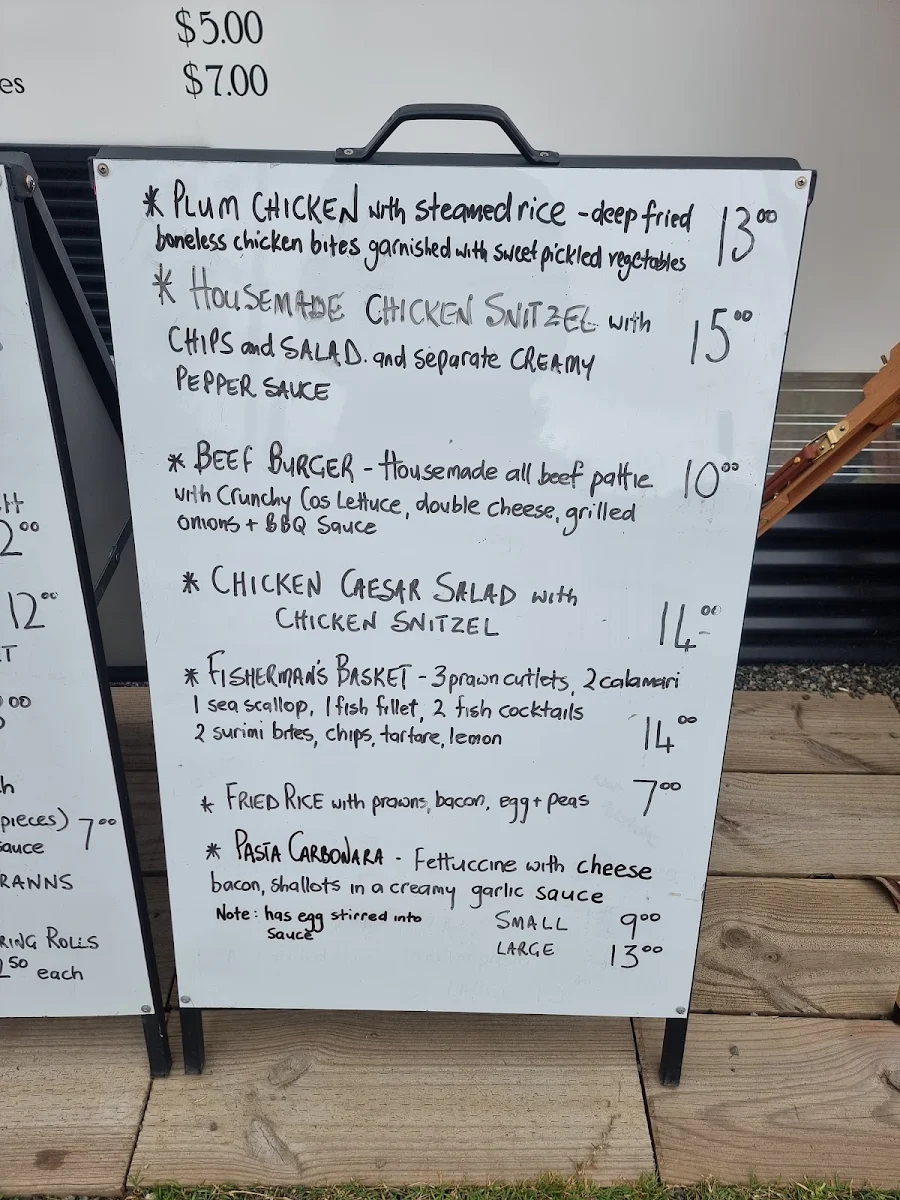 $5.00
es $7.00
* PLUM CHICKEN with steamed rice - deep fried 13⁰⁰
boneless chicken bites garnished with sweet pickled vegetables
* HOUSEMADE CHICKEN SNITZEL with 15⁰⁰
CHIPS and SALAD. and separate CREAMY
PEPPER SAUCE
* BEEF BURGER - Housemade all beef pattie 10⁰⁰
with Crunchy Cos Lettuce, double cheese, grilled
onions + BBQ Sauce
* CHICKEN CAESAR SALAD with
CHICKEN SNITZEL 14⁰⁰
* FISHERMAN'S BASKET - 3 prawn cutlets, 2 calamari
1 sea scallop, 1 fish fillet, 2 fish cocktails
2 surimi bites, chips, tartare, lemon 14⁰⁰
* FRIED RICE with prawns, bacon, egg + peas 7⁰⁰
* PASTA CARBONARA - Fettuccine with cheese
bacon, shallots in a creamy garlic sauce
Note: has egg stirred into
sauce
SMALL 9⁰⁰
LARGE 13⁰⁰
2⁰⁰
12⁰⁰
T
00
h
pieces) 7⁰⁰
sauce
RAWNS
RING ROLLS
2⁵⁰ each